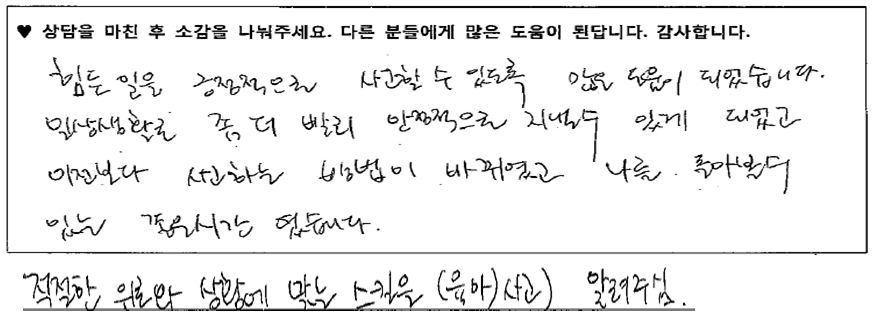 ♥ 상담을 마친 후 소감을 나눠주세요. 다른 분들에게 많은 도움이 된답니다. 감사합니다.
힘든 일을 긍정적으로 사고할 수 있도록 많은 도움이 되었습니다.
일상생활로 좀 더 빨리 안정적으로 지낼 수 있게 되었고
이전보다 사고하는 방법이 바뀌었고 나를 돌아볼 수
있는 좋은 시간 였습니다.
적절한 위로와 상황에 맞는 스킬을 (육아)사고) 알려주심.